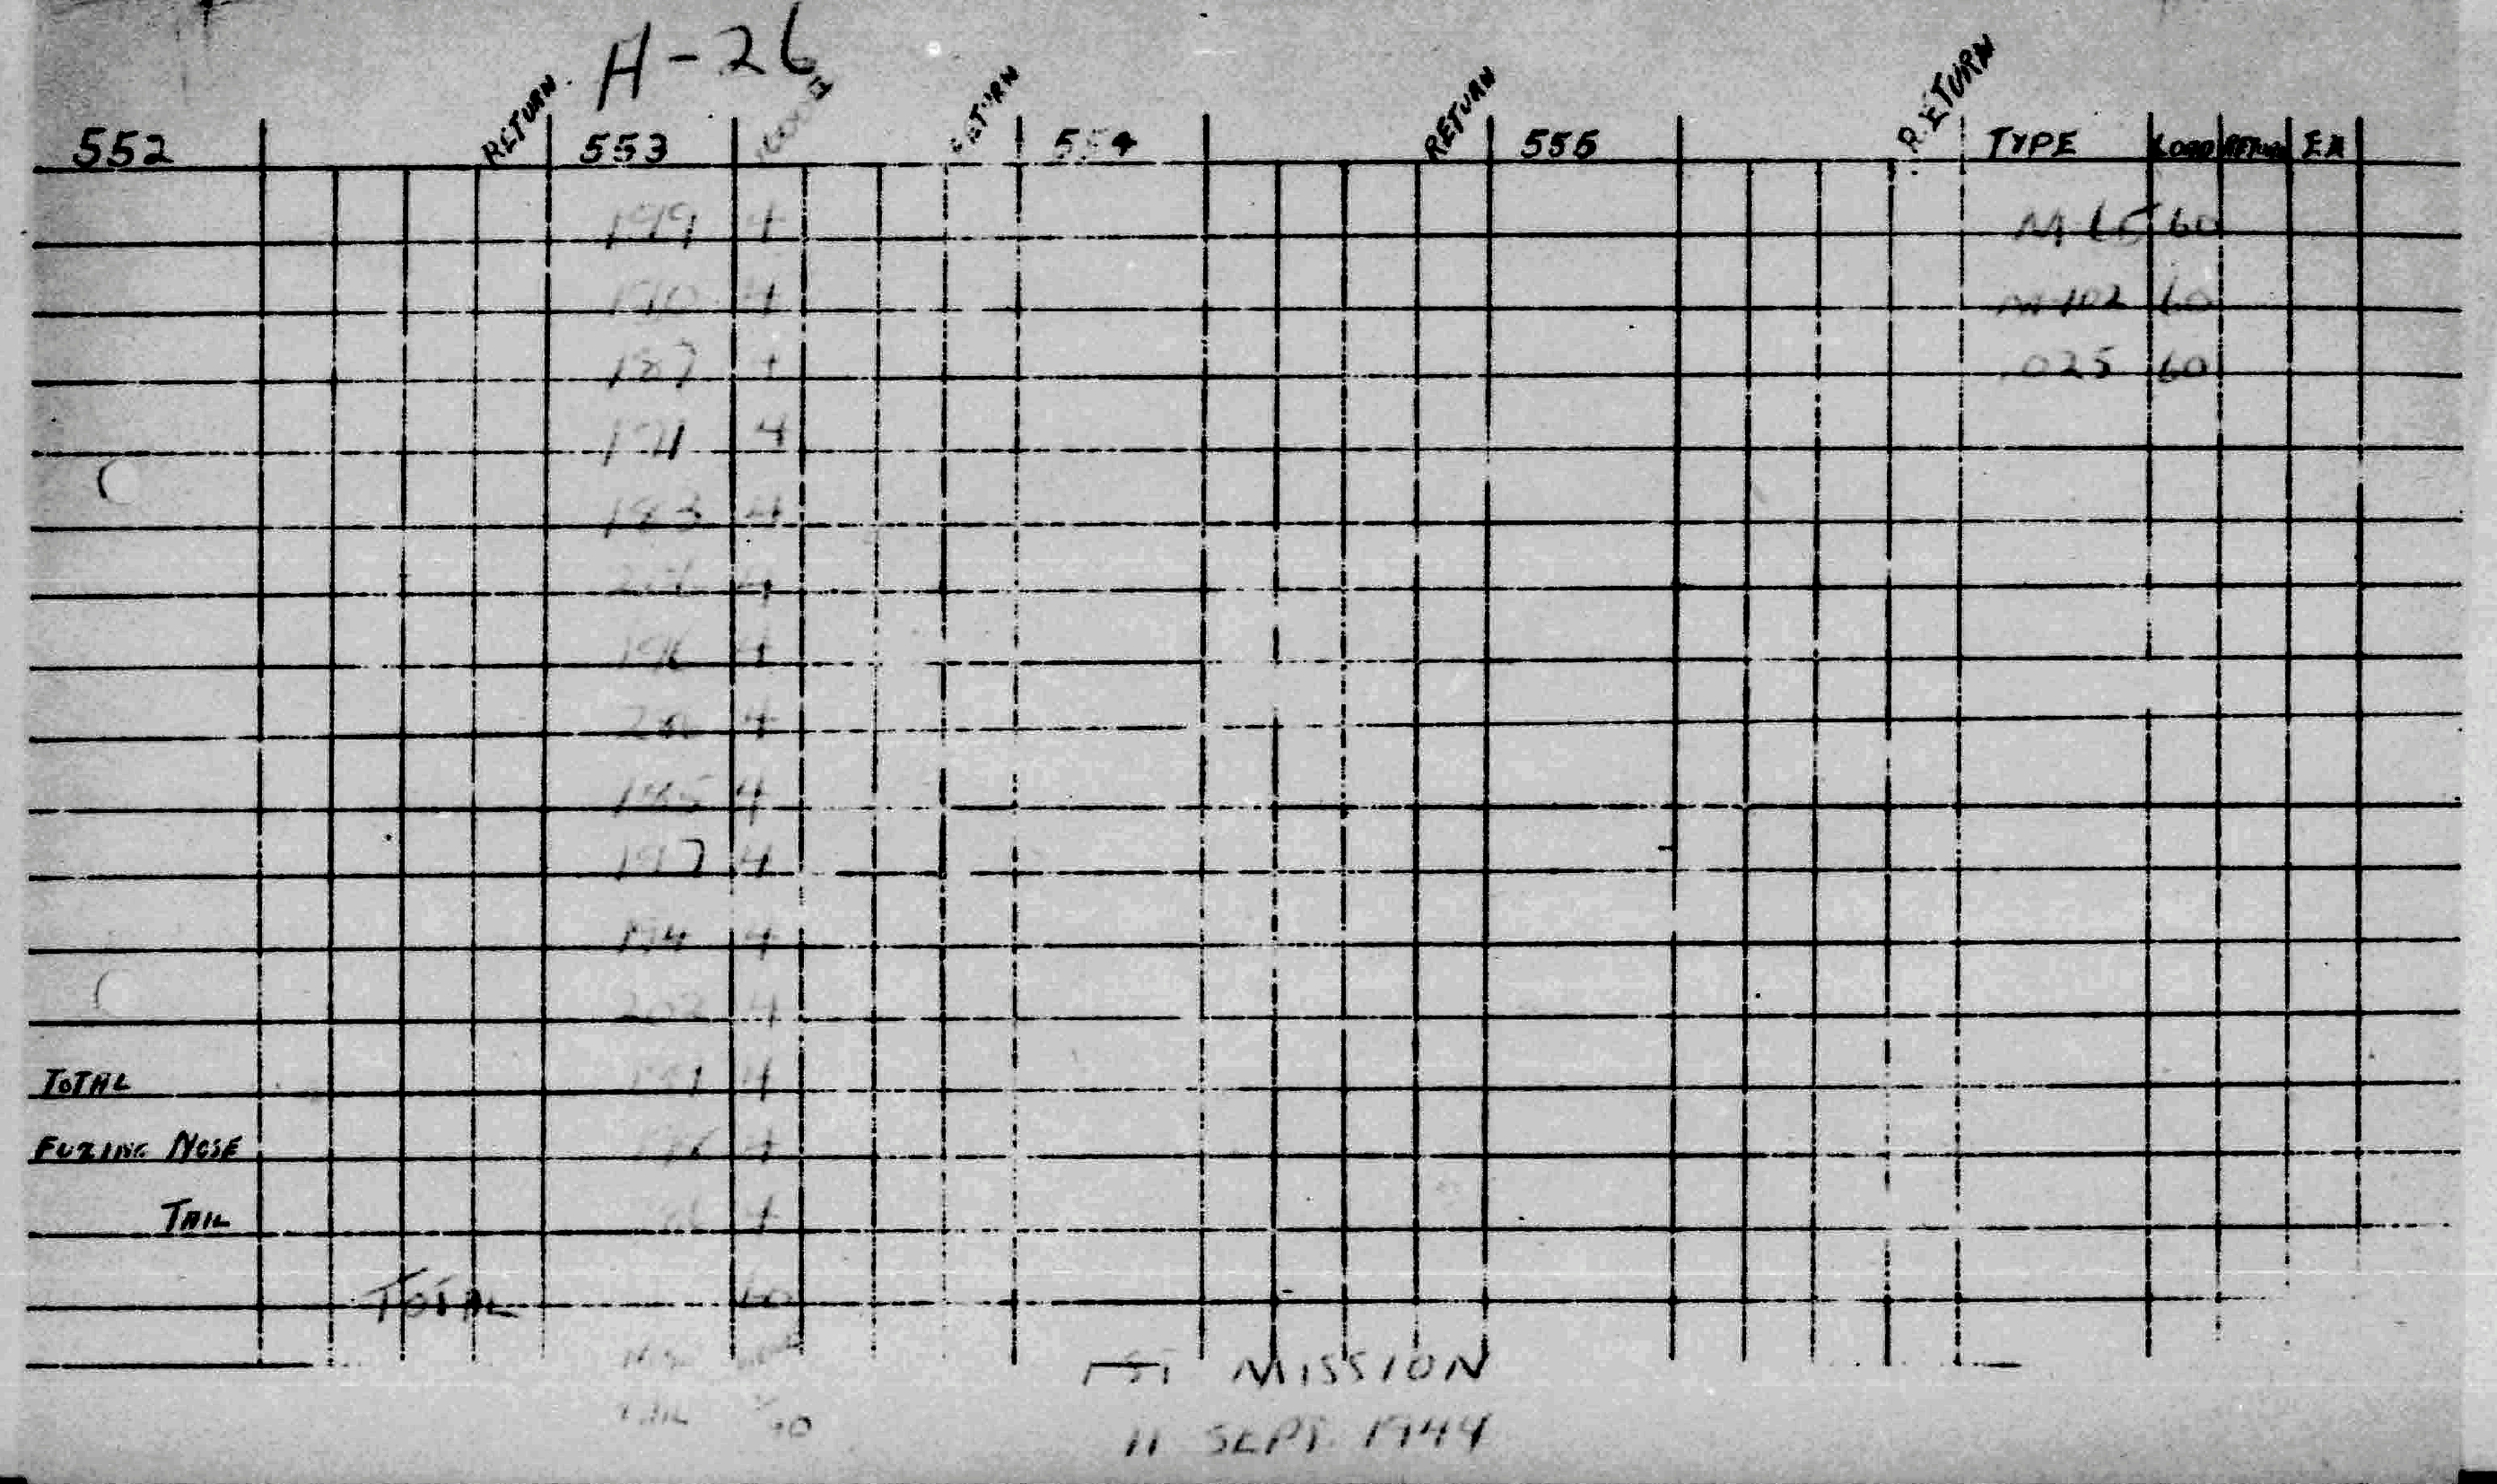 A-26
552 RETURN 553 RETURN 554 RETURN 555 RETURN TYPE LOAD RETURN EA
199 4 M-65 60
190 4 M-102 60
187 4 .025 60
4
183 4
4
4
4
185 4
197 4
194 4
202 4
TOTAL 4
FUZING NOSE 4
TAIL 4
TOTAL 60
1ST MISSION
TAIL
11 SEPT. 1944